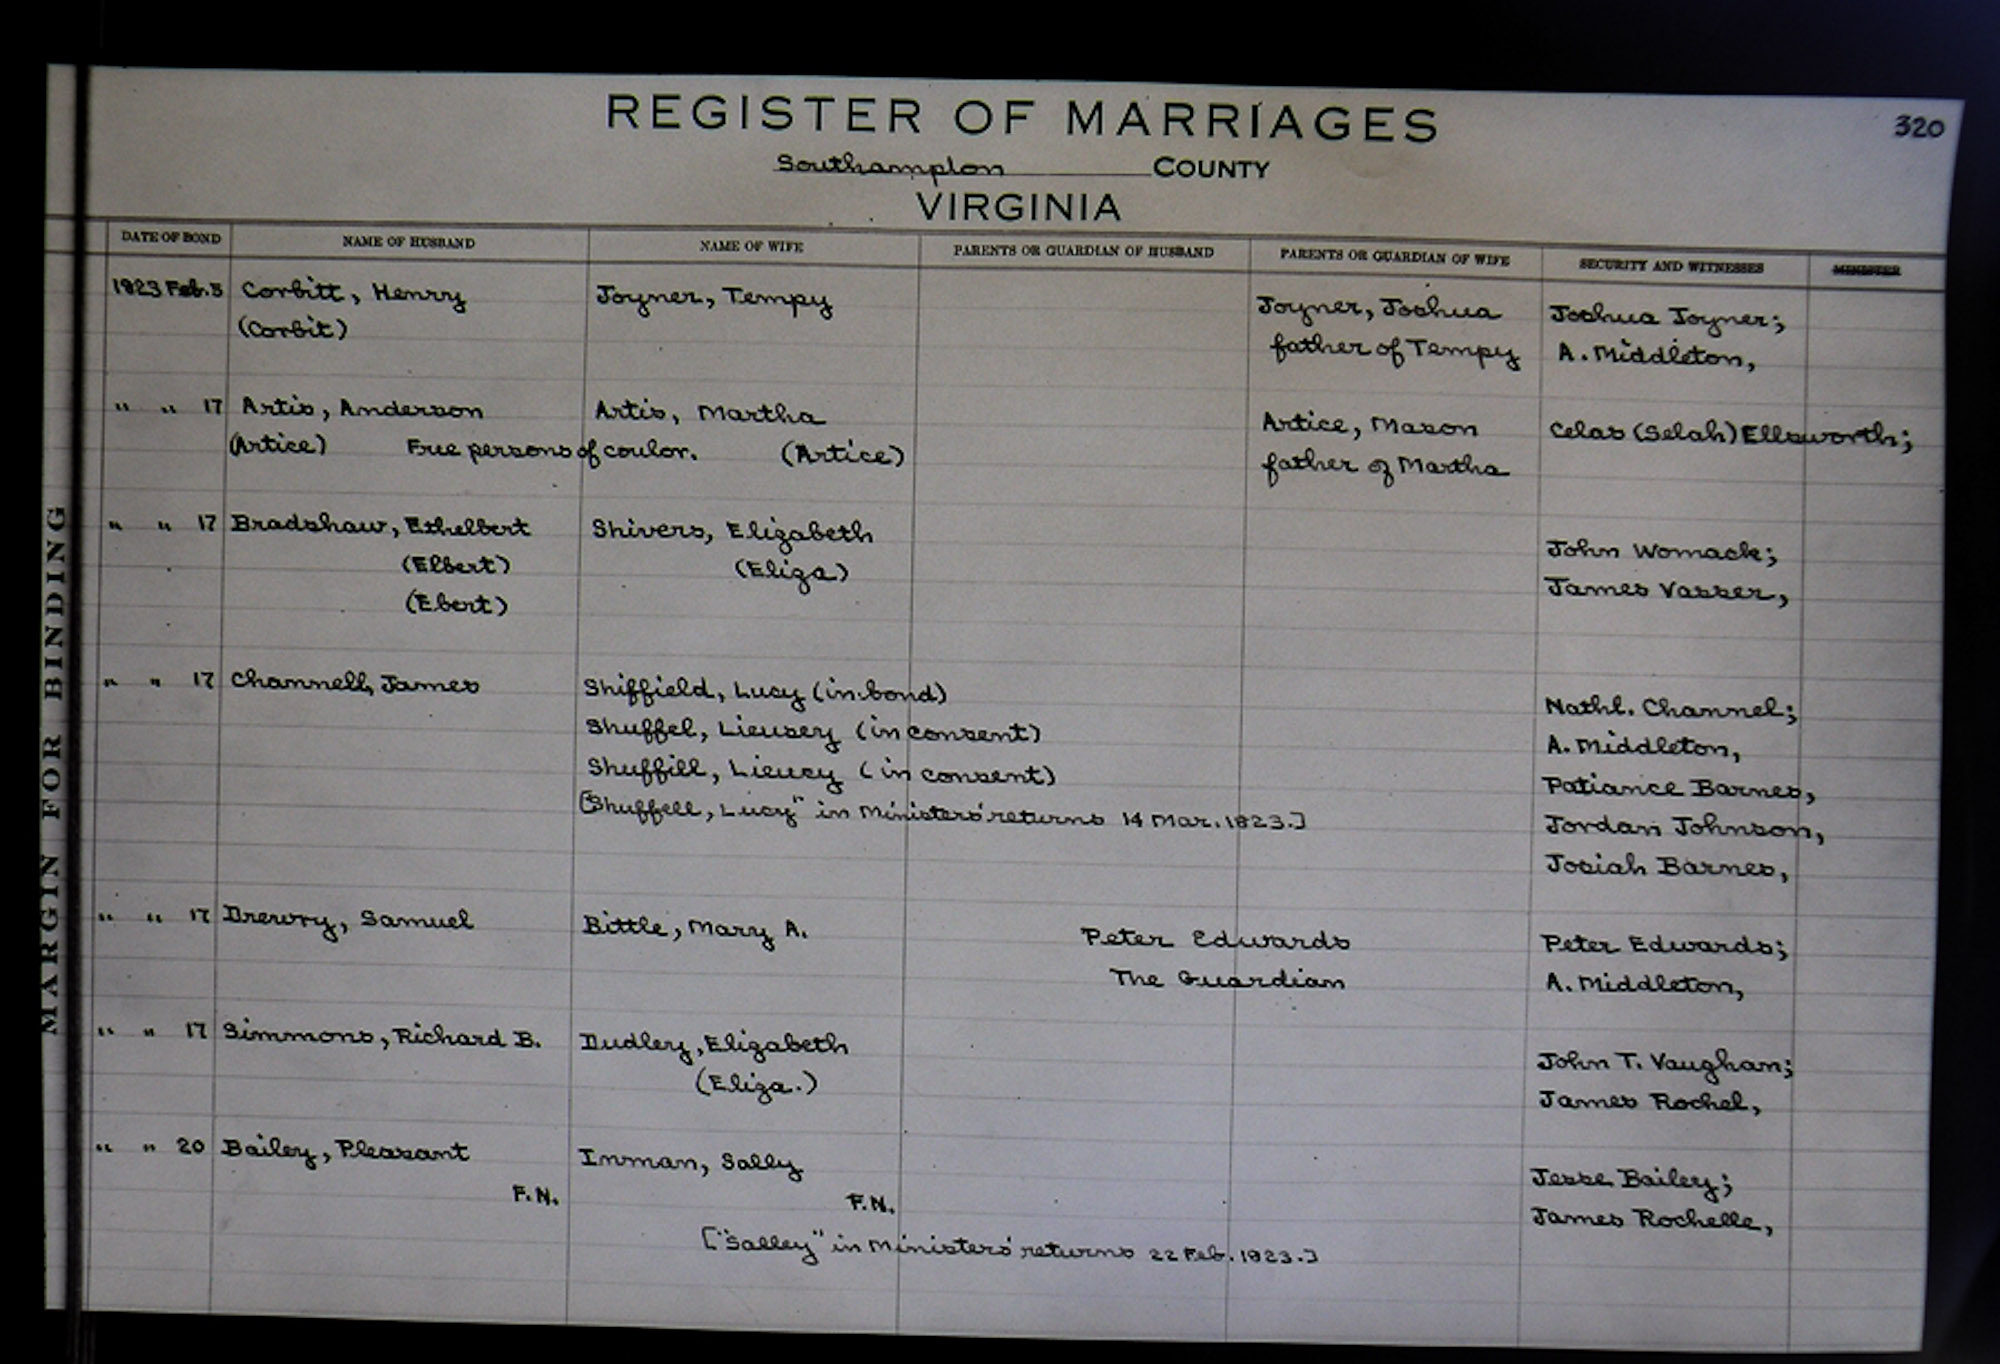 REGISTER OF MARRIAGES
320
Southampton COUNTY
VIRGINIA
DATE OF BOND NAME OF HUSBAND NAME OF WIFE PARENTS OR GUARDIAN OF HUSBAND PARENTS OR GUARDIAN OF WIFE SECURITY AND WITNESSES MINISTER
1823 Feb. 5 Corbitt, Henry Joyner, Tempy Joyner, Joshua Joshua Joyner;
(Corbit) father of Tempy A. Middleton,
" " 17 Artis, Anderson Artis, Martha Artice, Mason Celas (Selah) Ellsworth;
(Artice) Free persons of coulor. (Artice) father of Martha
" " 17 Bradshaw, Ethelbert Shivers, Elizabeth John Womack;
(Elbert) (Eliza) James Vasser,
(Ebert)
" " 17 Channell, James Shiffield, Lucy (in bond) Nathl. Channel;
Shuffel, Lieusey (in consent) A. Middleton,
Shuffill, Lieucy (in consent) Patiance Barnes,
["Shuffell, Lucy" in Ministers' returns 14 Mar. 1823.] Jordan Johnson,
Josiah Barnes,
" " 17 Drewry, Samuel Bittle, Mary A. Peter Edwards Peter Edwards;
The Guardian A. Middleton,
" " 17 Simmons, Richard B. Dudley, Elizabeth John T. Vaughan;
(Eliza.) James Rochel,
" " 20 Bailey, Pleasant Inman, Sally Jesse Bailey;
F.N. F.N. James Rochelle,
["Salley" in Ministers' returns 22 Feb. 1823.]
MARGIN FOR BINDING